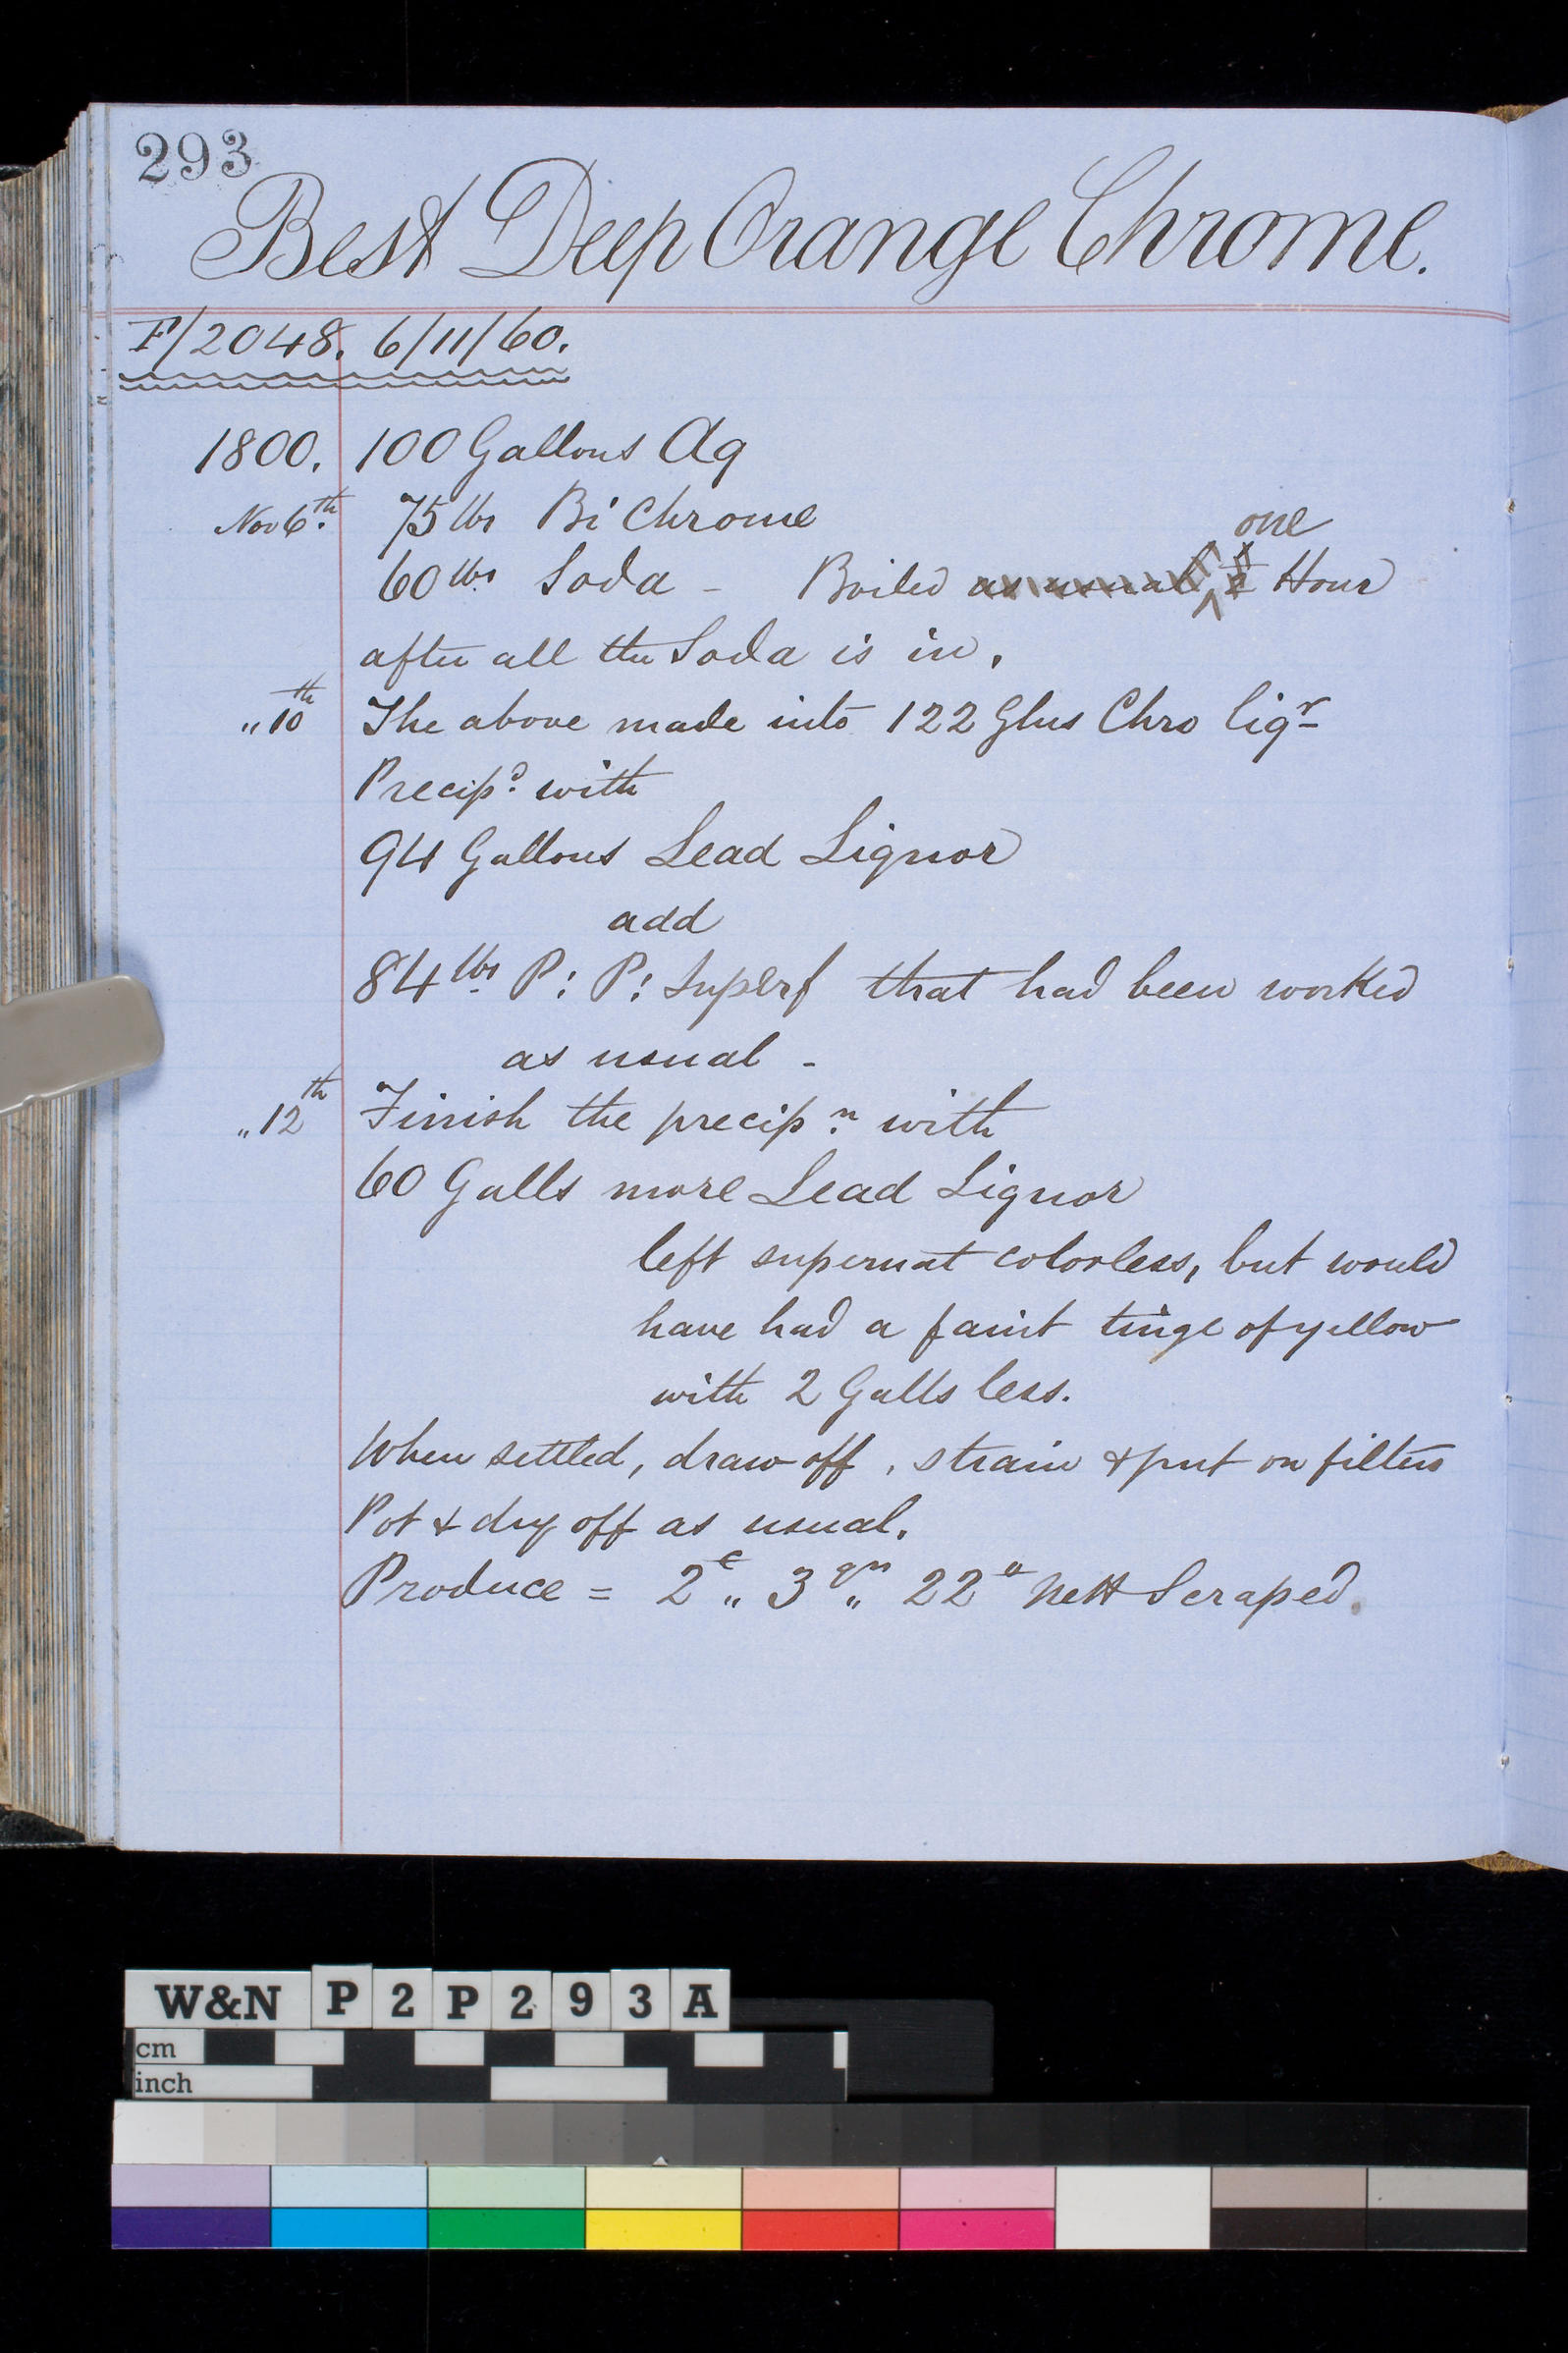 293
Best Deep Orange Chrome.
F/2048. 6/11/60.
1800. 100 Gallons Aq
Nov 6th. 75 lbs Bi Chrome
one
60 lbs Soda - Boiled as usual, Hour
after all the Soda is in.
„ 10th The above made into 122 Glns Chro liqr
Precipd. with
94 Gallons Lead Liquor
add
84 lbs P: P: Superf that had been worked
as usual -
„ 12th Finish the precipn. with
60 Galls more Lead Liquor
left supernat colorless, but would
have had a faint tinge of yellow
with 2 Galls less.
When settled, draw off, strain & put on filters
Pot & dry off as usual.
Produce = 2c „ 3qrs „ 22 Nett Scraped.
W&N P2P293A
cm
inch